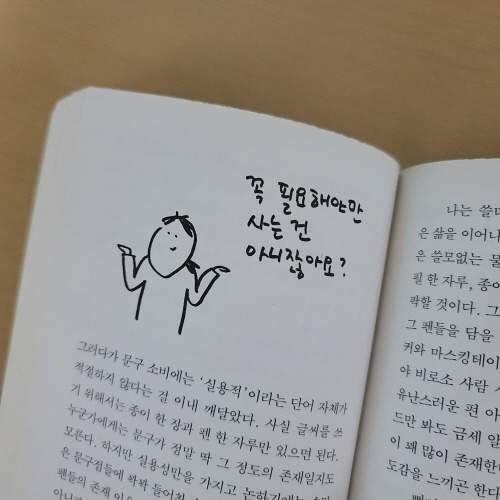 꼭 필요해야만
사는 건
아니잖아요?
그러다가 문구 소비에는 '실용적'이라는 단어 자체가
적절하지 않다는 걸 이내 깨달았다. 사실 글씨를 쓰
기 위해서는 종이 한 장과 펜 한 자루만 있으면 된다.
누군가에게는 문구가 정말 딱 그 정도의 존재일지도
모른다. 하지만 실용성만을 가지고 논하기에는
은 문구점들에 꽉꽉 들어찬
펜들의 존재
나는 쓸
은 삶을 이어나
은 쓸모없는 물
필 한 자루, 종이
팍할 것이다. 그
그 펜들을 담을
커와 마스킹테이
야 비로소 사람
유난스러운 편
드만 봐도 금세
이 꽤 많이 존재한
도감을 느끼곤 한다